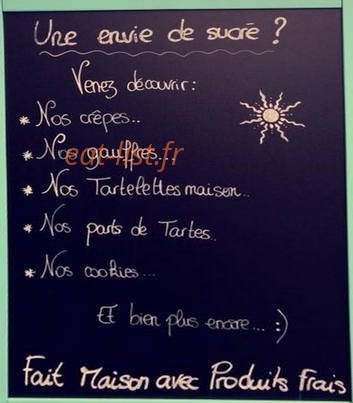 Une envie de sucré ?
Venez découvrir :
* Nos crêpes..
* Nos gauffres...
eat-list.fr
* Nos Tartelettes maison..
* Nos parts de Tartes..
* Nos cookies...
Et bien plus encore... :)
Fait Maison avec Produits frais